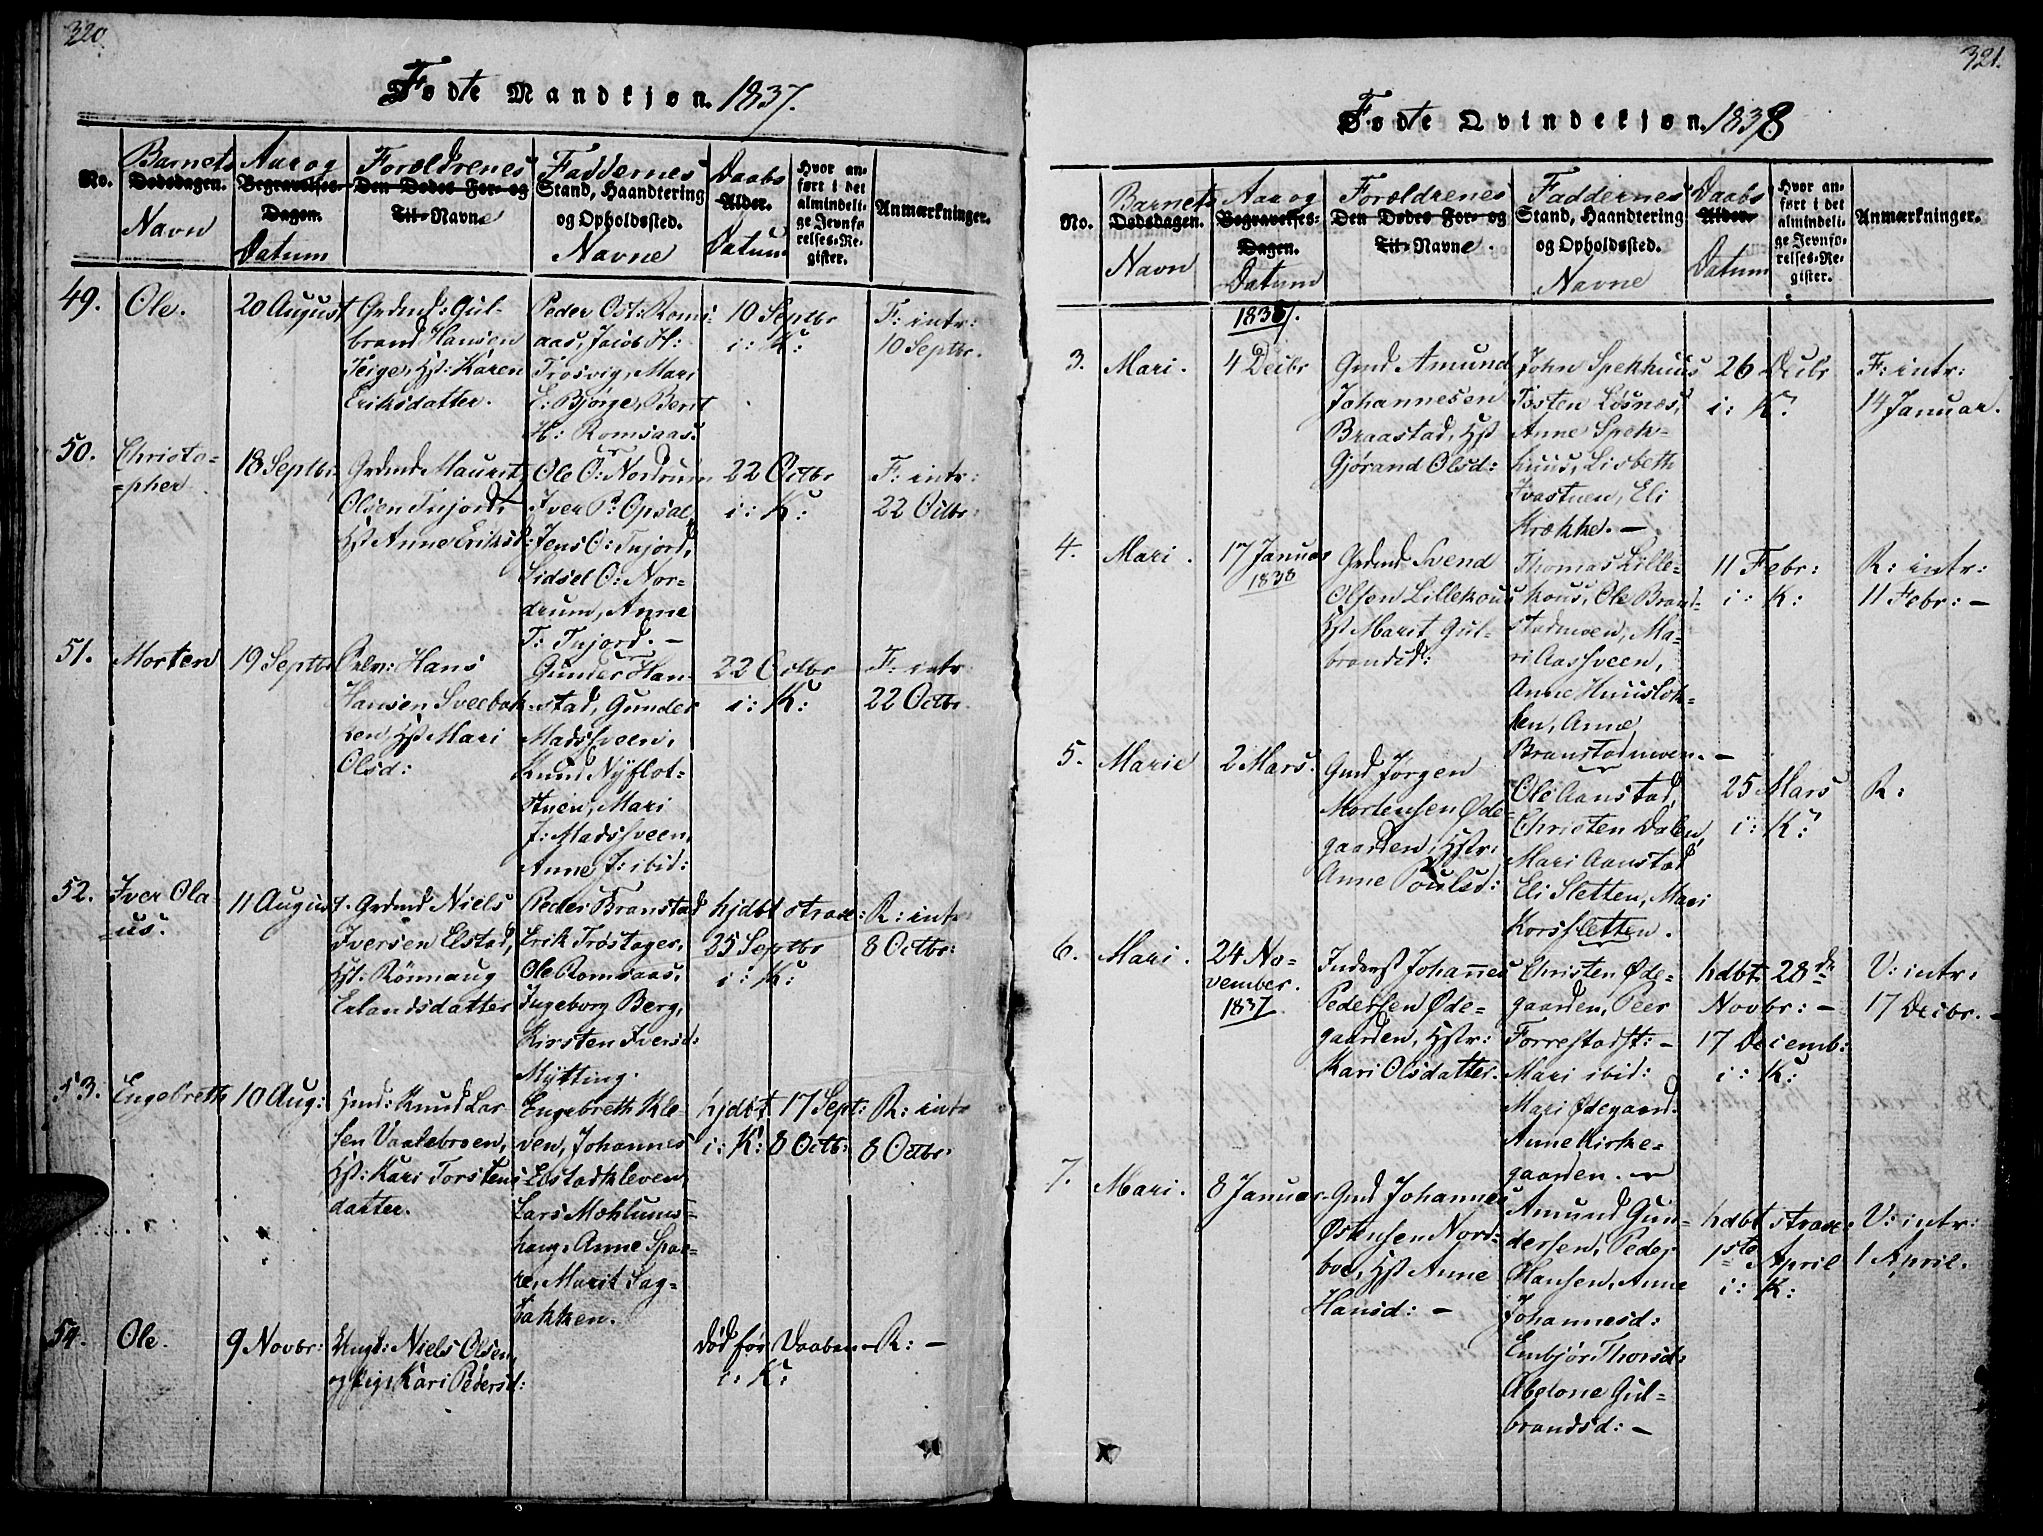 320.
Fødte Mandkjøn. 1837.
No.
Barnets
Dødsdagen.
Navn
Aar og
Begravelses-
Dagen.
Datum
Forældrenes
Den Dødes For- og
Til-Navne
Faddernes
Stand, Haandtering
og Opholdssted.
Navne
Daabs
Alder.
Datum
Hvor an-
ført i det
almindeli-
ge Jevnfø-
relses-Re-
gister.
Anmærkninger.
49.
Ole.
20 August
Grdmd: Gul-
brand Hansen
Teiger, Hst: Karen
Eriksdatter.
Peder Ost: Roms-
aas, Jacob H:
Trosvig, Mari
E: Bjørge, Berit
H: Romsaas.
10 Septbr
i: K:
F: intr:
10 Septbr.
50.
Christo-
-pher
18 Septbr
Grdmd Maurits
Olsen Tujord,
Hst Anne Eriksd:
Ole O: Nordrum
Iver P: Opsal,
Jens O: Tujord,
Sidsel O: Nor-
drum, Anne
T: Tujord. –
22 Octbr
i: K:
F: intr:
22 Octbr.
51.
Morten
19 Septbr
Hans
Hansen Sveebak-
ken Hst Mari
Olsd:
Gunder Han-
stad, Gunder
Madssveen,
Knud Nyflot-
stuen, Mari
J: Madssveen,
Anne J: ibid:
22 Octbr
i: K:
F: intr
22 Octbr.
52.
Iver Ola-
us.
11 August.
Grdmd Niels
Iversen Elstad,
Hst: Rønnaug
Erlandsdatter
Peder Branstad
Erik Trøstager,
Ole Romsaas,
Ingeborg Berg,
Kirsten Iversd:
Mytting.
hjdbt strax:
25 Septbr
i: K:
R: intr
8 Octbr:
53.
Engebreth
10 Aug:
Hmd: Knud Lar-
sen Vaalebroen,
Hst: Kari Torstens-
datter.
Engebreth Kle-
ven, Johannes
Elstadkleven
Lars Mohlums-
haug, Anne Spar-
re, Marit Sag-
bakken.
hjdbt 17 Sept:
i: K: 8 Octb:
R: intr
8 Octbr.
54.
Ole.
9 Novbr:
Ungk: Niels Olsen,
og Pig. Kari Pedersd:
Død før Daaben
i: K:
R: –
321.
Fødte Qvindekjøn. 1838
No.
Barnets
Dødsdagen.
Navn
Aar og
Begravelses-
Dagen.
Datum
Forældrenes
Den Dødes For- og
Til-Navne.
Faddernes
Stand, Haandtering
og Opholdssted.
Navne
Daabs
Alder.
Datum
Hvor an-
ført i det
almindeli-
ge Jevnfø-
relses-Re-
gister.
Anmærkninger.
1837.
3.
Mari.
4 Decbr
Gmd Amund
Johannesen
Braastad, Hst
Gjørand Olsd:
John Spekhuus
Tosten Losnæs,
Anne Spek-
huus, Lisbeth
Ivastuen, Eli
Krække. –
26 Decbr
i: K:
F: intr:
14 Januar.
4.
Mari.
17 Januar
1838
Grdmd Svend
Olsen Lillehous
Hst Marit Gul-
brandsd:
Thomas Lille-
hous, Ole Bran-
stadmoen, Ma-
ri Aassveen,
Anne Huusløk-
ken, Anne
Branstadmoen. –
11 Febr:
i: K:
R: intr:
11 Febr: –
5.
Marie
2 Mars.
Gmd Jørgen
Mortensen Øde-
gaarden, Hstr:
Anne Poulsd:
Ole Aanstad,
Christen Dalen,
Mari Aanstad
Eli Sletten, Mari
Korssletten.
25 Mars
i: K:
R:
6.
Mari.
24 No-
vember.
1837
Inderst Johannes
Pedersen Øde-
gaarden, Hstr:
Kari Olsdatter.
Christen Øde-
gaarden, Peer
Forrestadst: –
Mari ibid:
Mari Ødegaard.
Anne Kirke-
gaarden.
hdbt 28de
Novbr: –
17 Decemb:
i: K:
V: intr:
17 Decbr. –
7.
Mari.
8 Januar
Gmd Johannes
Østensen Nord-
boe, Hst Anne
Hansd: –
Amund Gun-
dersen, Peder
Hansen, Anne
Johannesd:
Embjør Thorsd:
Abelone Gul-
brandsd: –
hdbt strax:
1ste April
i: K:
V: intr:
1 April.